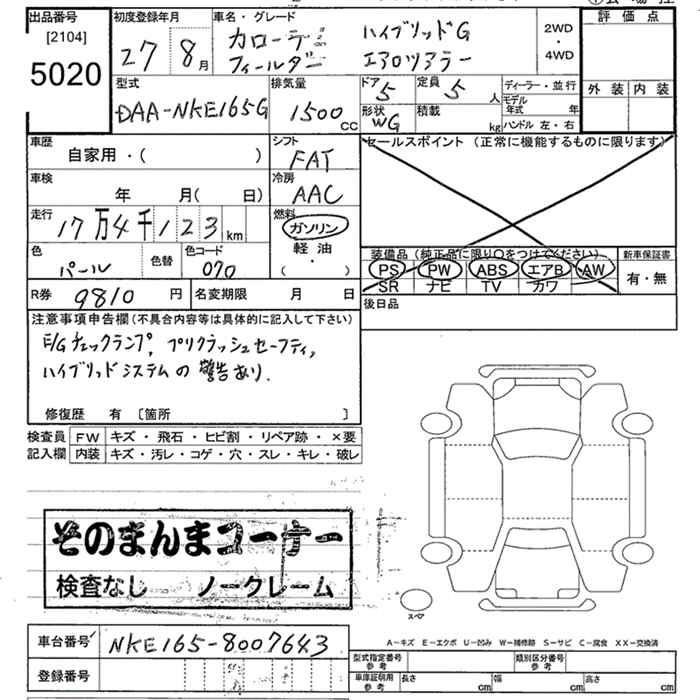 出品番号 初度登録年月 車名・グレード 評価点
[2104]
5020
27 8月
カローラ ハイブリッドG
フィールダー エアロツアラー
2WD
・
4WD
外装 内装
型式 排気量 ドア 定員 ディーラー・並行
DAA-NKE165G 1500CC 5 5人
モデル年式 年
形状 積載 ハンドル 左・右
WG kg
車歴 シフト セールスポイント (正常に機能するものに限ります)
自家用・( ) FAT
車検 冷房
年 月( 日) AAC
走行 燃料
17万4千123km ガソリン
軽油
・
( )
色 色替 色コード
パール 070
装備品 (純正品に限り○をつけてください) 新車保証書
PS PW ABS エアB AW 有・無
SR ナビ TV カワ
R券 9810円 名変期限 月 日 後日品
注意事項申告欄(不具合内容等は具体的に記入して下さい)
E/Gチェックランプ、プリクラッシュセーフティ、
ハイブリッドシステムの警告あり.
修復歴 有 [箇所 ]
検査員 FW キズ・飛石・ヒビ割・リペア跡・×要
記入欄 内装 キズ・汚レ・コゲ・穴・スレ・キレ・破レ
そのまんまコーナー
検査なし ノークレーム
スペア
A-キズ E-エクボ U-凹み W-補修跡 S-サビ C-腐食 XX-交換済
車台番号 NKE165-8007643
型式指定番号 参考 類別区分番号 参考
登録番号
車庫証明用 参考 長さ cm 幅 cm 高さ cm